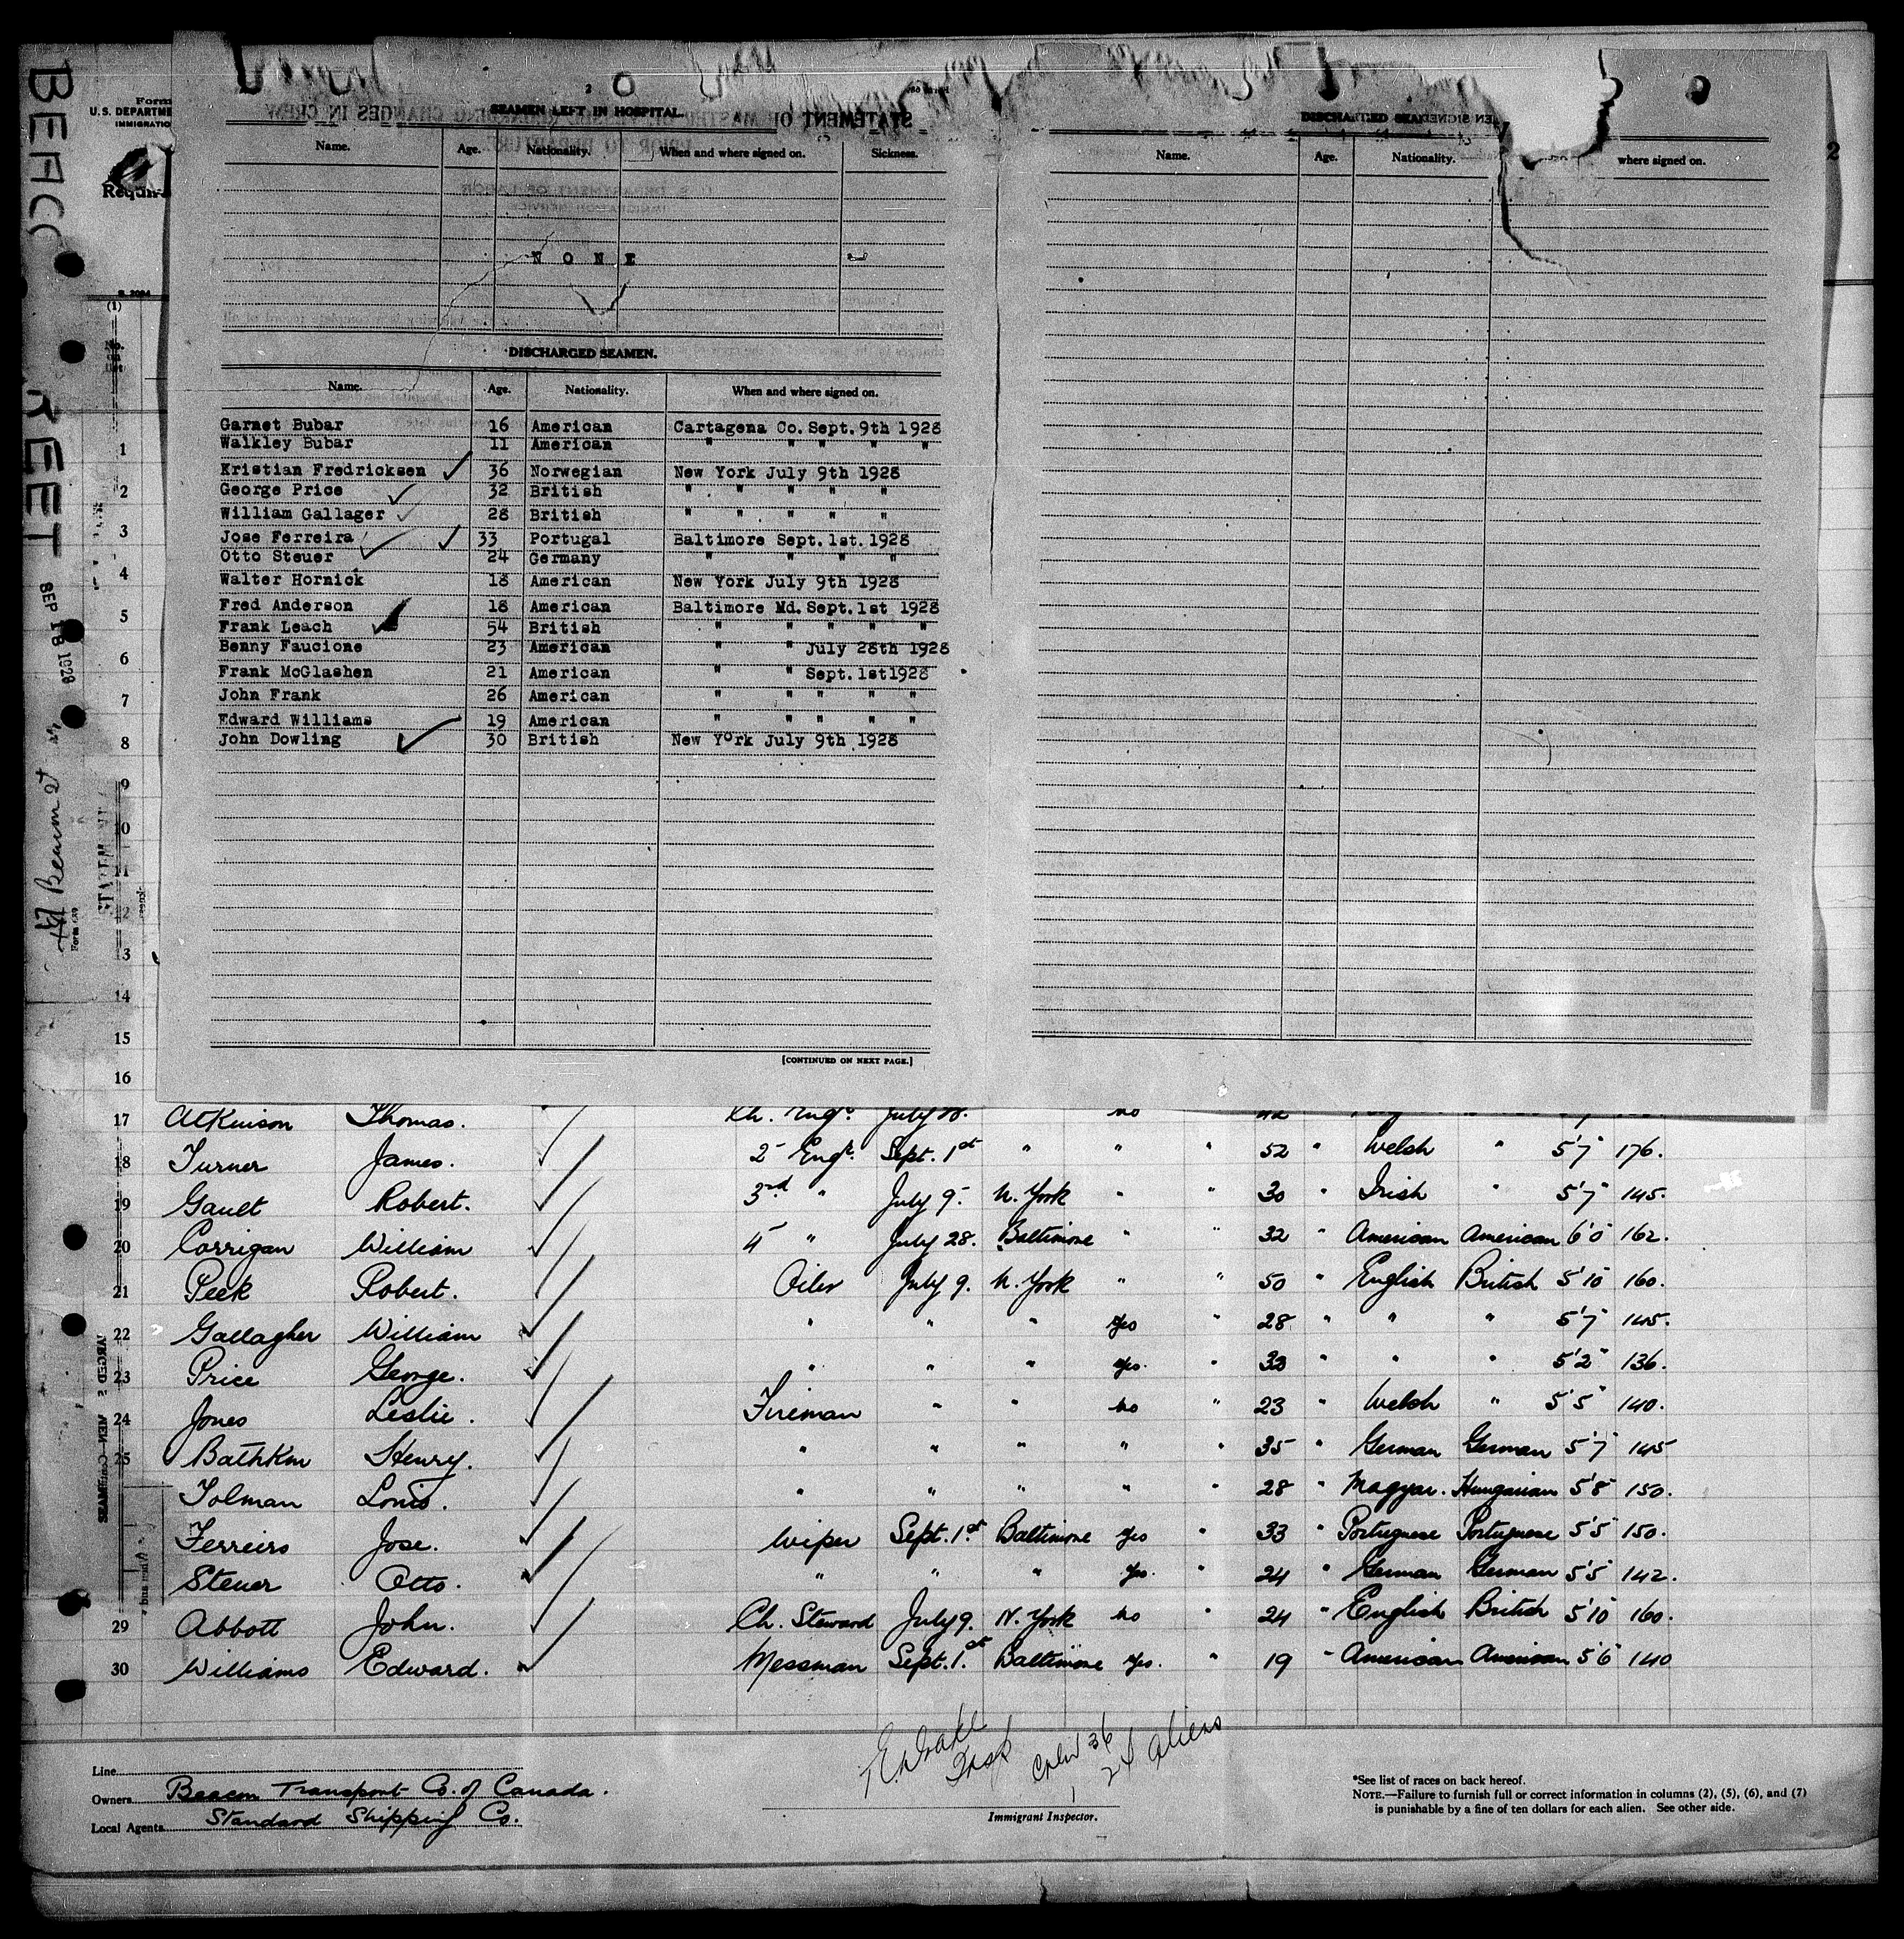 Form
U.S. DEPARTME
IMMIGRATIO
Require
SEAMEN LEFT IN HOSPITAL.
STATEMENT OF MASTER REGARDING CHANGES IN CREW
Name. Age. Nationality. When and where signed on. Sickness.
N O N E
DISCHARGED SEAMEN.
Name. Age. Nationality. When and where signed on.
Garnet Bubar 16 American Cartagena Co. Sept. 9th 1928
Walkley Bubar 11 American " " " " "
Kristian Fredricksen 36 Norwegian New York July 9th 1928
George Price 32 British " " " " "
William Gallager 28 British " " " " "
Jose Ferreira 33 Portugal Baltimore Sept. 1st. 1928
Otto Steuer 24 Germany " " " "
Walter Hornick 18 American New York July 9th 1928
Fred Anderson 18 American Baltimore Md. Sept. 1st 1928
Frank Leach 54 British " " " " "
Benny Faucione 23 American " " July 28th 1928
Frank McGlashen 21 American " " Sept. 1st 1928
John Frank 26 American " " " " "
Edward Williams 19 American " " " " "
John Dowling 30 British New York July 9th 1928
[CONTINUED ON NEXT PAGE.]
DISCHARGED SEAMEN
Name. Age. Nationality. where signed on.
2
BEACO
REET
SEP 18 1928
Beaumont
(1)
No.
on
List
1
2
3
4
5
6
7
8
9
10
11
12
13
14
15
16
17 Atkinson Thomas. Ch. Engr. July no
18 Turner James. 2 Engr. Sept. 1st " " " 52 " Welsh " 5'7" 176.
19 Gault Robert. 3rd " July 9 N. York " " 30 " Irish " 5'7" 145.
20 Corrigan William 4 " July 28. Baltimore " " 32 " American American 6'0 162.
21 Peek Robert. Oiler July 9. N. York " " 50 " English British 5'10 160.
22 Gallagher William " " " Yes " 28 " " " 5'7" 145.
23 Price George. " " " Yes. " 33 " " " 5'2" 136.
24 Jones Leslie. Fireman " " no " 23 " Welsh " 5'5" 140.
25 Bathkm Henry. " " " " " 35 " German German 5'7" 145
Tolman Louis. " " " " " 28 " Magyar. Hungarian 5'8" 150.
Ferreiro Jose. Wiper Sept. 1st Baltimore Yes " 33 " Portuguese Portuguese 5'5" 150.
Steuer Otto. " " " Yes. " 24 " German German 5'5 142.
29 Abbott John. Ch. Steward July 9. N. York no " 24 " English British 5'10 160.
30 Williams Edward. Messman Sept. 1st. Baltimore Yes. " 19 " American American 5'6" 140
Line
Owners Beacon Transport Co. of Canada.
Local Agents Standard Shipping Co.
36
24 aliens
Immigrant Inspector.
*See list of races on back hereof.
NOTE.—Failure to furnish full or correct information in columns (2), (5), (6), and (7)
is punishable by a fine of ten dollars for each alien. See other side.